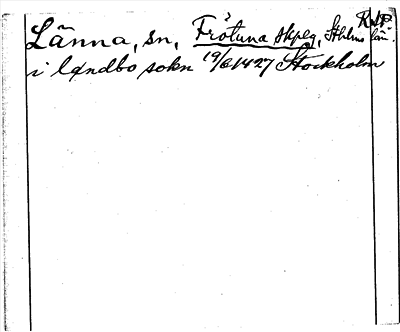 RAP.
Länna, sn, Frötuna skpg, Sthlms län.
i lændbo sokn 19/6 1427 Stockholm